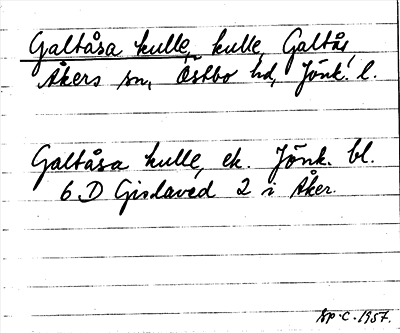 Galtåsa kulle, kulle, Galtås,
Åkers sn, Östbo hd, Jönk. l.
Galtåsa kulle, ek. Jönk. bl.
6 D Gislaved 2 i Åker.
Sp. C. 1957.